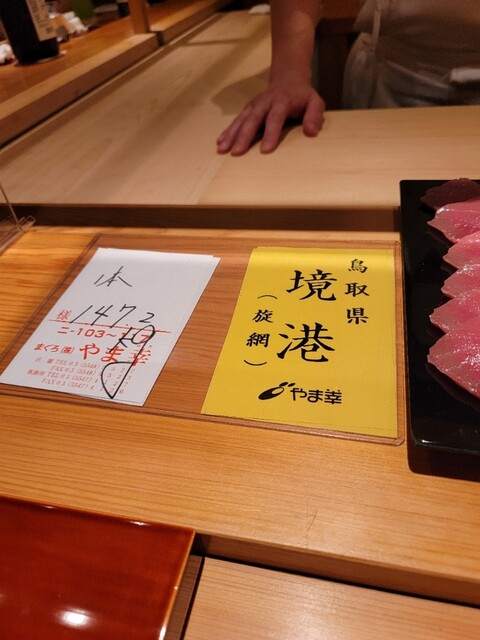 本
様
147.2
kg
ニ-103~
まぐろ㈱やま幸
鳥取県
境港
(旋網)
やま幸